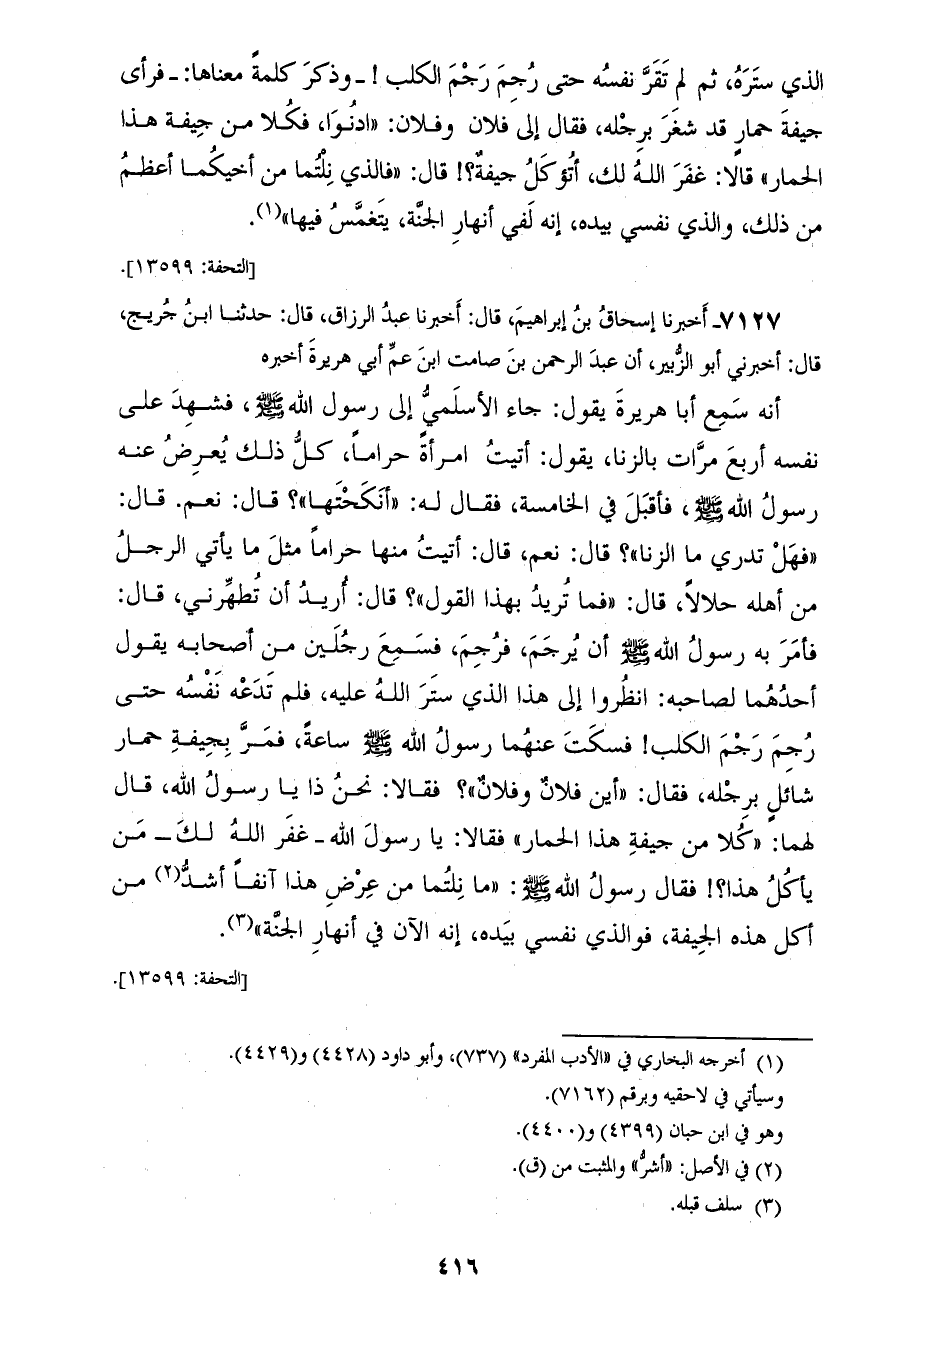 الذي ستَرَهُ، ثم لم تَقَرَّ نفسُه حتى رُجِمَ رَجْمَ الكلب ! ـ وذكرَ كلمةً معناها: ـ فرأى
جيفةَ حمارٍ قد شغَرَ برِجْله، فقال إلى فلان وفلان: «ادنُوَا، فكُلا من جِيفة هذا
الحمار» قالا: غفَرَ اللهُ لك، أَتُؤكَلُ جيفةٌ؟! قال: «فالذي نِلْتُما من أخيكُما أعظمُ
من ذلك، والذي نفسي بيده، إنه لَفي أنهارِ الجنَّة، يَتَغمَّسُ فيها»(١).
[التحفة: ١٣٥٩٩].
٧١٢٧ـ أَخبرنا إسحاقُ بنُ إبراهيمَ، قال: أَخبرنا عبدُ الرزاق، قال: حدثنا ابنُ جُريج،
قال: أخبرني أبو الزُّبير، أن عبدَ الرحمن بنَ صامت ابنَ عمِّ أبي هريرةَ أخبره
أنه سَمِع أبا هريرةَ يقول: جاء الأسلَميُّ إلى رسول الله ﷺ، فشهِدَ على
نفسه أربعَ مرَّات بالزنا، يقول: أتيتُ امرأةً حراماً، كلُّ ذلك يُعرِضُ عنه
رسولُ الله ﷺ، فأقبَلَ في الخامسة، فقال له: «أنَكَحْتَها»؟ قال: نعم. قال:
«فهَلْ تدري ما الزنا»؟ قال: نعم، قال: أتيتُ منها حراماً مثلَ ما يأتي الرجلُ
من أهله حلالاً، قال: «فما تُريدُ بهذا القول»؟ قال: أُريدُ أن تُطهِّرني، قال:
فأمَرَ به رسولُ الله ﷺ أن يُرجَمَ، فرُجِمَ، فسَمِعَ رجُلَين من أصحابه يقول
أحدُهُما لصاحبه: انظُروا إلى هذا الذي ستَرَ اللهُ عليه، فلم تَدَعْه نَفْسُه حتى
رُجِمَ رَجْمَ الكلب! فسكَتَ عنهُما رسولُ الله ﷺ ساعةً، فمَرَّ بِجيفةِ حمار
شائلٍ برِجْله، فقال: «أين فلانٌ وفلانٌ»؟ فقالا: نحنُ ذا يا رسولُ الله، قال
لهما: «كُلا من جيفةِ هذا الحمار» فقالا: يا رسولَ الله ـ غفَر اللهُ لكَ ـ مَن
يأكُلُ هذا؟! فقال رسولُ الله ﷺ: «ما نِلتُما من عِرْضِ هذا آنفاً أشدُّ(٢) من
أكل هذه الجِيفة، فوالذي نفسي بيَده، إنه الآن في أنهارِ الجنَّة»(٣).
[التحفة: ١٣٥٩٩].
(١) أخرجه البخاري في «الأدب المفرد» (٧٣٧)، وأبو داود (٤٤٢٨) و(٤٤٢٩).
وسيأتي في لاحقيه وبرقم (٧١٦٢).
وهو في ابن حبان (٤٣٩٩) و(٤٤٠٠).
(٢) في الأصل: «أشرُّ» والمثبت من (ق).
(٣) سلف قبله.
٤١٦